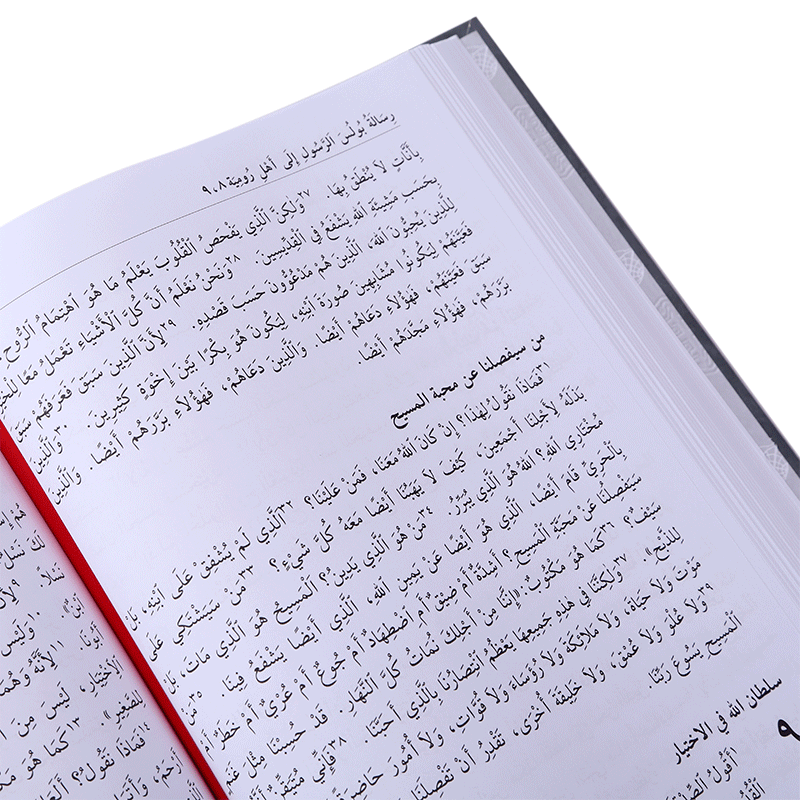 رِسَالَةُ بُولُسَ ٱلرَّسُولِ إِلَى أَهْلِ رُومِيَةَ ٨، ٩
بِأَنَّاتٍ لَا يُنْطَقُ بِهَا. ٢٧وَلَكِنَّ ٱلَّذِي يَفْحَصُ ٱلْقُلُوبَ يَعْلَمُ مَا هُوَ ٱهْتِمَامُ ٱلرُّوحِ،
بِحَسَبِ مَشِيئَةِ ٱللهِ يَشْفَعُ فِي ٱلْقِدِّيسِينَ. ٢٨وَنَحْنُ نَعْلَمُ أَنَّ كُلَّ ٱلْأَشْيَاءِ تَعْمَلُ مَعًا لِلْخَيْرِ
لِلَّذِينَ يُحِبُّونَ ٱللهَ، ٱلَّذِينَ هُمْ مَدْعُوُّونَ حَسَبَ قَصْدِهِ. ٢٩لِأَنَّ ٱلَّذِينَ سَبَقَ فَعَرَفَهُمْ سَبَقَ
فَعَيَّنَهُمْ لِيَكُونُوا مُشَابِهِينَ صُورَةَ ٱبْنِهِ، لِيَكُونَ هُوَ بِكْرًا بَيْنَ إِخْوَةٍ كَثِيرِينَ. ٣٠وَٱلَّذِينَ
سَبَقَ فَعَيَّنَهُمْ، فَهَؤُلَاءِ دَعَاهُمْ أَيْضًا. وَٱلَّذِينَ دَعَاهُمْ، فَهَؤُلَاءِ بَرَّرَهُمْ أَيْضًا. وَٱلَّذِينَ
بَرَّرَهُمْ، فَهَؤُلَاءِ مَجَّدَهُمْ أَيْضًا.
من سيفصلنا عن محبة المسيح
٣١فَمَاذَا نَقُولُ لِهَذَا؟ إِنْ كَانَ ٱللهُ مَعَنَا، فَمَنْ عَلَيْنَا؟ ٣٢اَلَّذِي لَمْ يُشْفِقْ عَلَى ٱبْنِهِ، بَلْ
بَذَلَهُ لِأَجْلِنَا أَجْمَعِينَ، كَيْفَ لَا يَهَبُنَا أَيْضًا مَعَهُ كُلَّ شَيْءٍ؟ ٣٣مَنْ سَيَشْتَكِي عَلَى
مُخْتَارِي ٱللهِ؟ ٱللهُ هُوَ ٱلَّذِي يُبَرِّرُ. ٣٤مَنْ هُوَ ٱلَّذِي يَدِينُ؟ ٱلْمَسِيحُ هُوَ ٱلَّذِي مَاتَ، بَلْ
بِٱلْحَرِيِّ قَامَ أَيْضًا، ٱلَّذِي هُوَ أَيْضًا عَنْ يَمِينِ ٱللهِ، ٱلَّذِي أَيْضًا يَشْفَعُ فِينَا. ٣٥مَنْ
سَيَفْصِلُنَا عَنْ مَحَبَّةِ ٱلْمَسِيحِ؟ أَشِدَّةٌ أَمْ ضِيْقٌ أَمِ ٱضْطِهَادٌ أَمْ جُوعٌ أَمْ عُرْيٌ أَمْ خَطَرٌ أَمْ
سَيْفٌ؟ ٣٦كَمَا هُوَ مَكْتُوبٌ: «إِنَّنَا مِنْ أَجْلِكَ نُمَاتُ كُلَّ ٱلنَّهَارِ. قَدْ حُسِبْنَا مِثْلَ غَنَمٍ
لِلذَّبْحِ». ٣٧وَلَكِنَّنَا فِي هَذِهِ جَمِيعِهَا يَعْظُمُ ٱنْتِصَارُنَا بِٱلَّذِي أَحَبَّنَا. ٣٨فَإِنِّي مُتَيَقِّنٌ
مَوْتَ وَلَا حَيَاةَ، وَلَا مَلَائِكَةَ وَلَا رُؤَسَاءَ وَلَا قُوَّاتِ، وَلَا أُمُورَ حَاضِرَةً
٣٩وَلَا عُلْوَ وَلَا عُمْقَ، وَلَا خَلِيقَةَ أُخْرَى، تَقْدِرُ أَنْ تَفْصِلَنَا
ٱلْمَسِيحِ يَسُوعَ رَبِّنَا.
سلطان الله في الاختيار
٩
١أَقُولُ ٱلصِّدْقَ